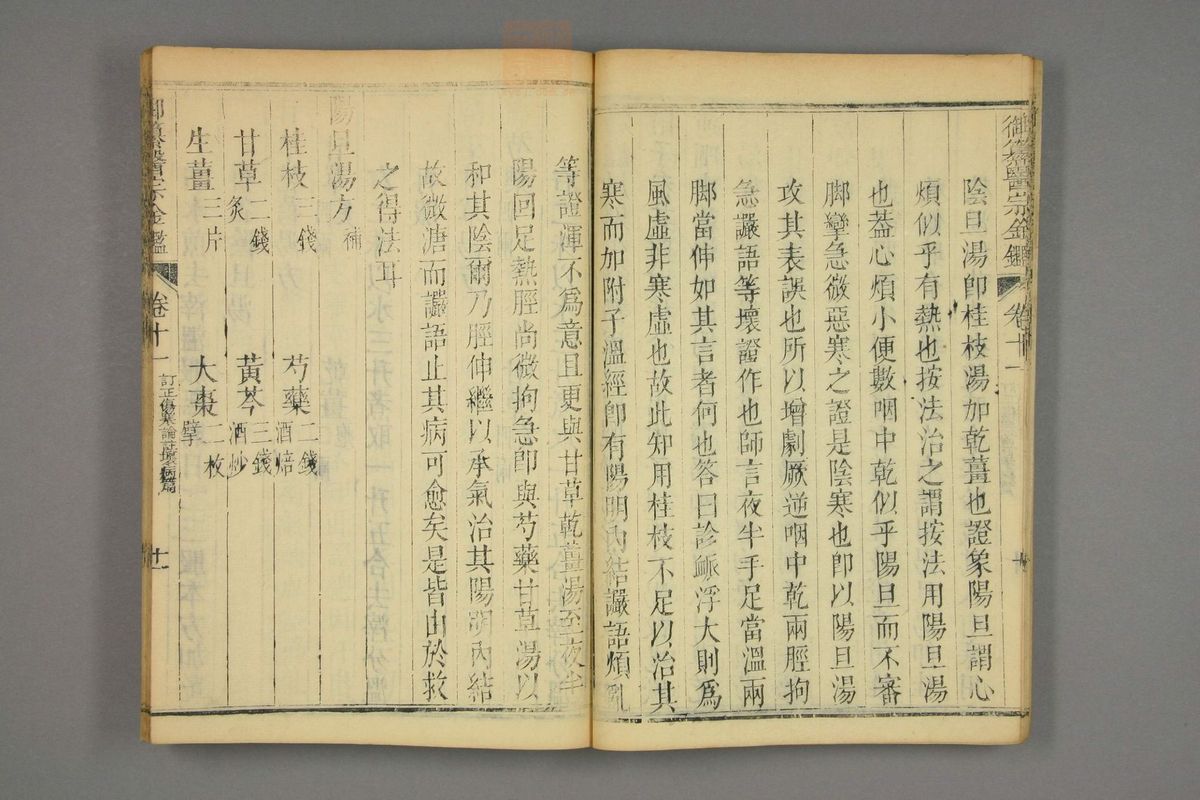 御纂醫宗金鑑 卷十一
陰旦湯卽桂枝湯加乾薑也證象陽旦謂心
煩似乎有熱也按法治之謂按法用陽旦湯
也蓋心煩小便數咽中乾似乎陽旦而不審
脚攣急微惡寒之證是陰寒也卽以陽旦湯
攻其表誤也所以增劇厥逆咽中乾兩脛拘
急讝語等壞證作也師言夜半手足當溫兩
脚當伸如其言者何也答曰診脈浮大則爲
風虛非寒虛也故此知用桂枝不足以治其
寒而加附子溫經卽有陽明內結讝語煩亂
等證渾不爲意且更與甘草乾薑湯至夜半
陽回足熱脛尚微拘急卽與芍藥甘草湯以
和其陰爾乃脛伸繼以承氣治其陽明內結
故微溏而讝語止其病可愈矣是皆由於救
之得法耳
陽旦湯方 補
桂枝三錢 芍藥二錢酒焙
甘草二錢炙 黃芩三錢酒炒
生薑三片 大棗二枚擘
御纂醫宗金鑑 卷十一 訂正傷寒論註壞病篇 十一